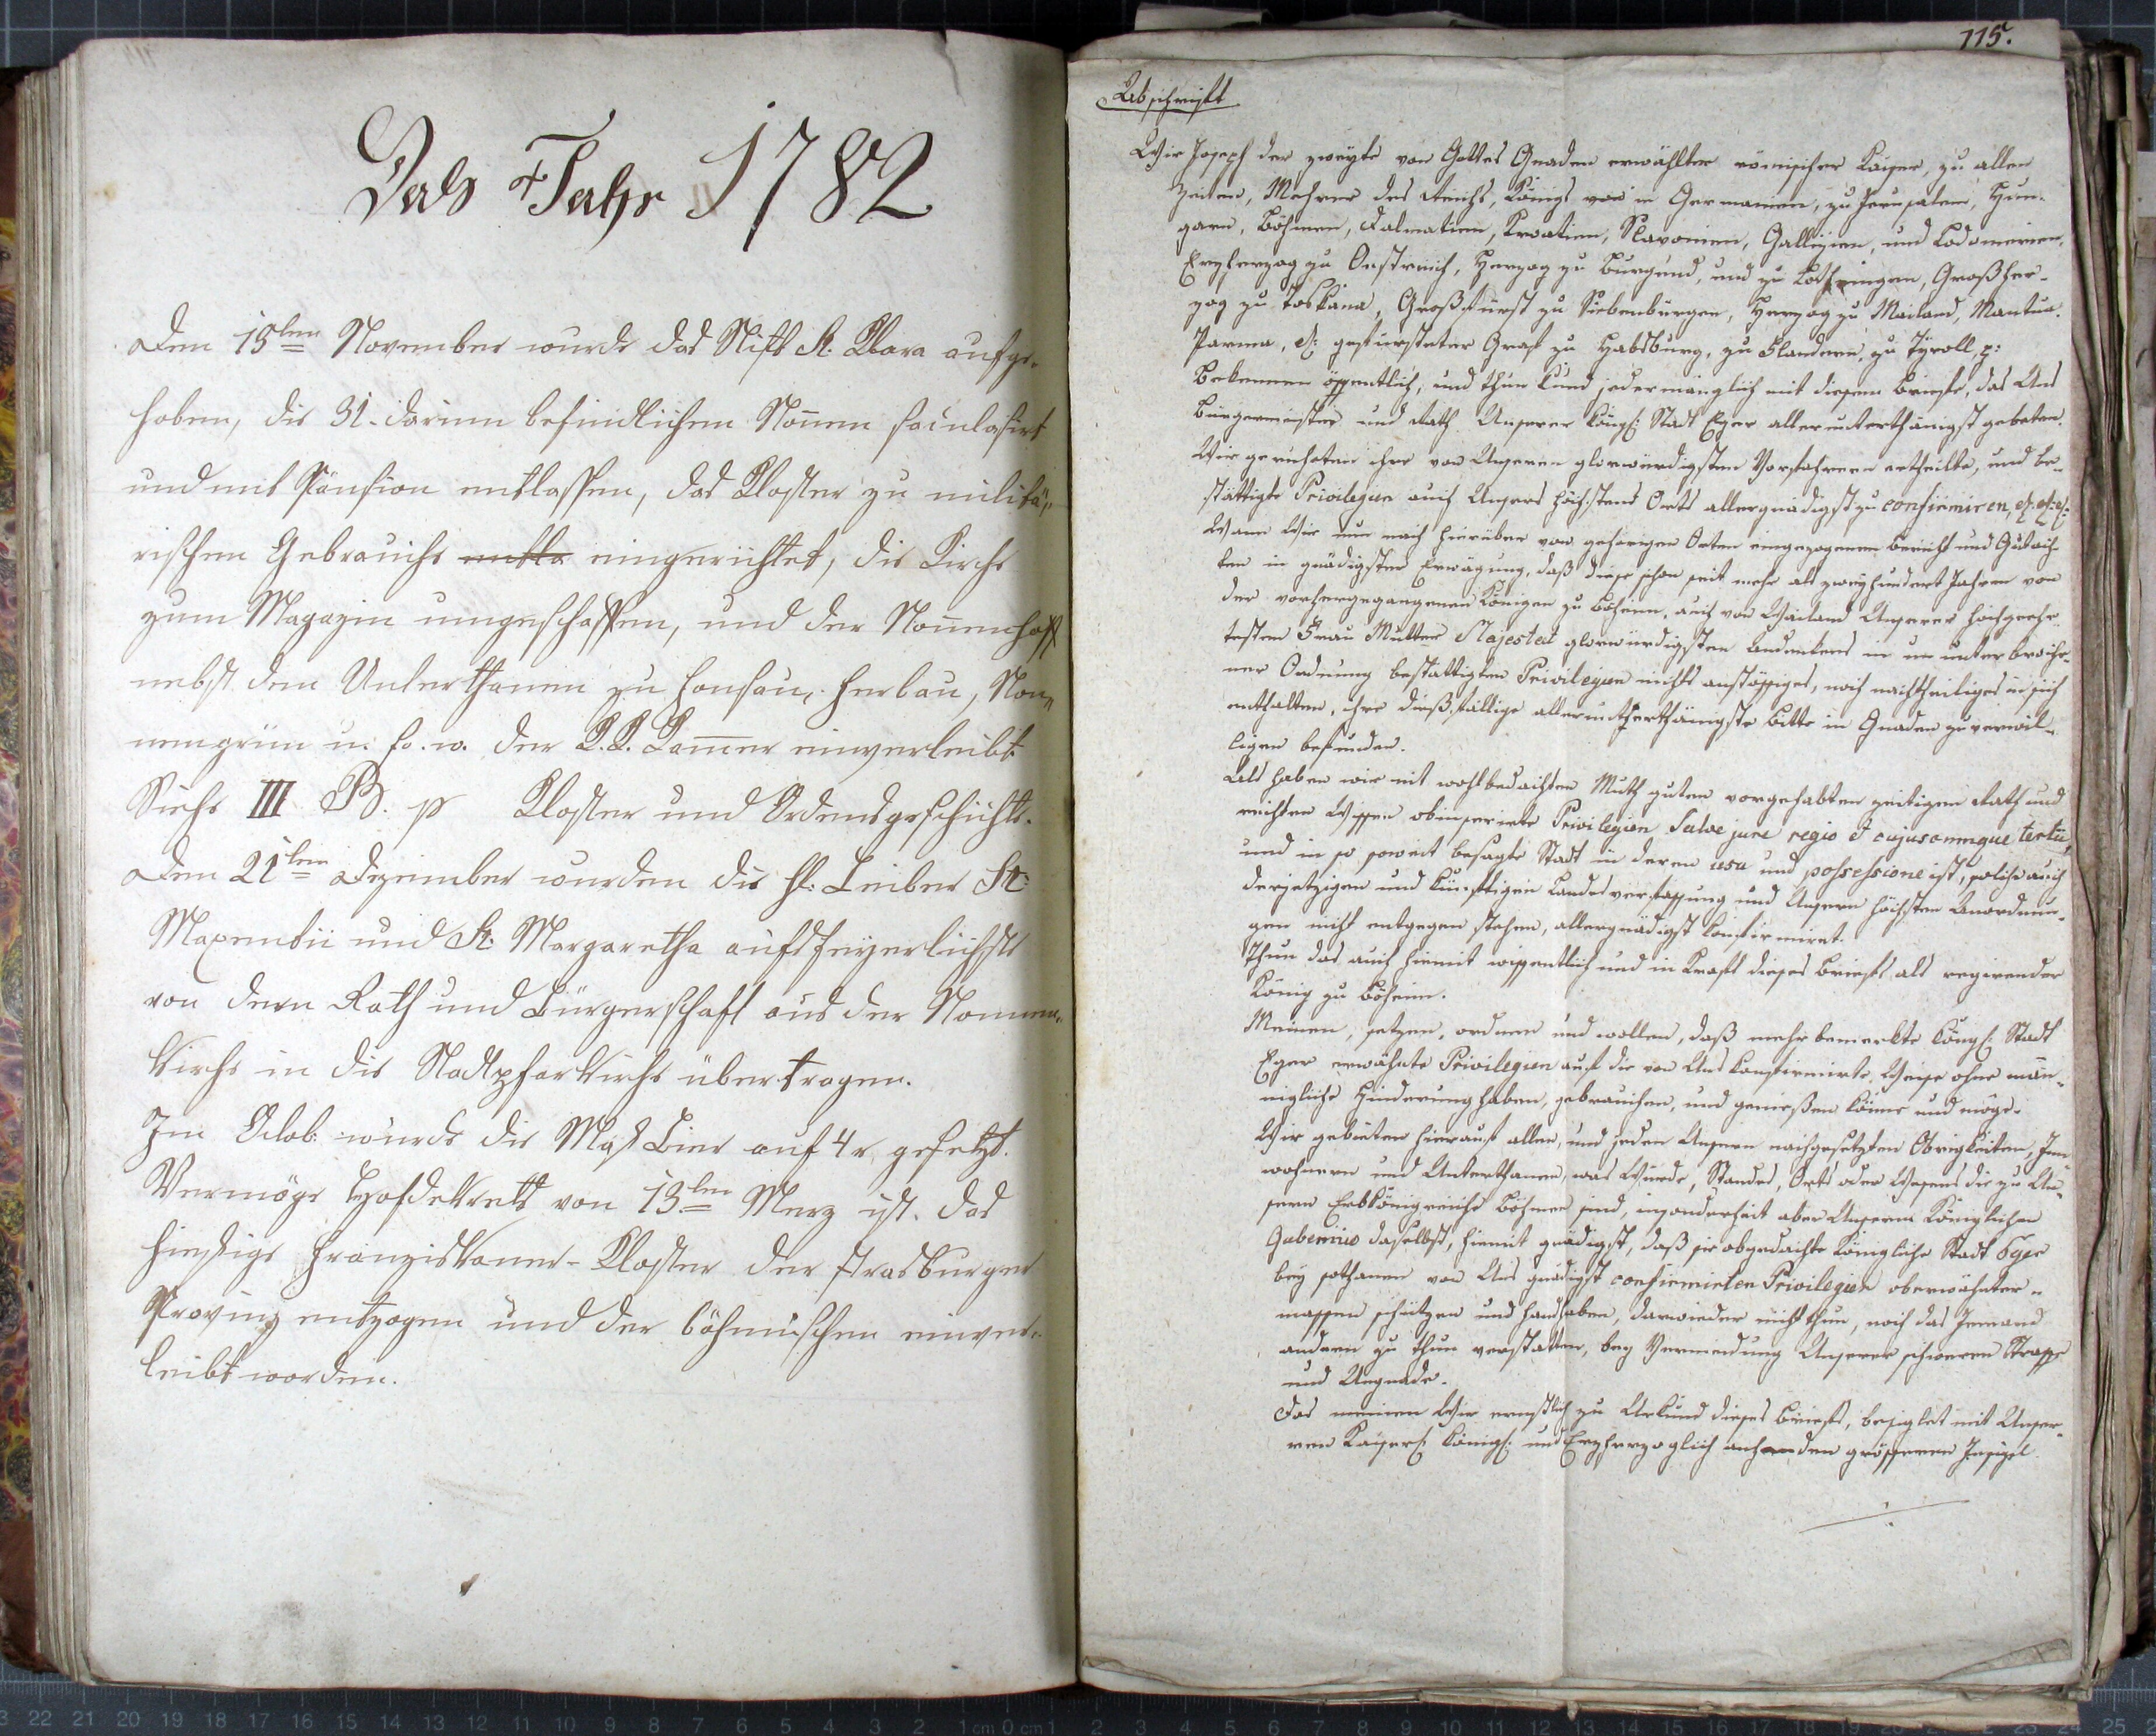 Das Jahr 1782
Den 15ten November wurde das Stift St. Klara aufge-
hoben, die 31. darinn befindlichen Nonnen säcularisirt
und mit Pänsion entlassen, das Kloster zu militä-
rischen Gebrauche eingerichtet, die Kirche
zum Magazin umgeschaffen, und der Nonnenhoff
nebst den Unterthanen zu Honsau, Herlau, Non-
nengrün u. s. w. der K. K. Kammer einverleibt.
Siehe III B. p Kloster und Ordensgeschichte.
Den 21ten Dezember wurden die hl. Leiber St:
Maxentii und St: Margaretha aufs feyerlichste
von dem Rath und Bürgerschaft aus der Nonnen-
kirche in die Stadtpfarkirche übertragen.
Im Octob. wurde die Maß Bier auf 4 x gesetzt.
Vermöge Hofdekrets von 13ten Merz ist das
hiesige Franziskaner-Kloster der strasburger
Provinz entzogen und der böhmischen einver-
leibt worden.
115.
Abschrift
Wir Joseph der zweyte von Gottes Gnaden erwählter römischer Kaiser, zu allen
Zeiten, Mehrer des Reichs, König in Germanien, zu Jerusalem, Hun-
garn, Böhmen, Dalmatien, Kroatien, Slavonien, Gallizien, und Lodomerien,
Erzherzog zu Oestreich, Herzog zu Burgund, und zu Lothringen, Großher-
zog zu Toskana, Großfürst zu Siebenbürgen, Herzog zu Mailand, Mantua,
Parma, &: gefürsteter Graf zu Habsburg, zu Flandern, zu Tyroll, p:
Bekennen öffentlich, und thun kund jedermänglich mit diesem Briefe, das Uns
Bürgermeister und Rath Unserer königl: Stadt Eger allerunterthänigst gebeten.
Wir geruheten ihre von Unseren glorwürdigsten Vorfahrern ertheilte, und be-
stättigte Privilegien auch Unsers höchstens Orts allergnädigst zu confirmiren, &: &: &:
Wann Wir nun nach hierüber von gehörigen Orten eingezogenem Bericht und Gutach-
ten in gnädigster Erwägung, daß diese schon seit mehr als zweyhundert Jahren von
der vorhergegangenen Königen zu Böheim, auch von Weiland Unserer Hochgeehr-
testen Frau Mutter Majestät glorwürdigsten Andenkens in ununterbroche-
ner Ordnung bestättigten Privilegien nichts anstössiges, noch nachtheiliges in sich
enthalten, ihre dießfällige allerunterthänigste Bitte in Gnaden zu verwil-
ligen befunden.
Als haben wir mit wohlbedachten Muth guten vorgehabten zeitigen Rath und
rechten Wissen obinserirte Privilegien Salvo jure regio et cujuscunque tertii,
und in so soweit besagte Stadt in deren usu und possessione ist, solche auch
derjetzigen und künftigen Landesverfassung und Unsern höchsten Anordnun-
gen nicht entgegen stehen, allergnädigst confirmiret.
Thun das auch hiemit wissentlich und in Kraft dieses Briefs als regierender
König zu Böheim.
Meinen, setzen, ordnen und wollen, daß mehrbemerkte königl: Stadt
Eger erwähnte Privilegien auf die von Uns konfirmirte Weise ohne män-
nigliche Hinderung haben, gebrauchen, und genießen könne und möge.
Wir gebieten hierauf allen, und jeden Unsern nachgesetzten Obrigkeiten, Inn-
wohnern und Unterthanen, was Würde, Standes, Orts oder Wesens die zu Un-
serm Erbkönigreiche Böhmen sind, insonderheit aber Unserem Königlichen
Gubernio daselbst, hiemit gnädigst, daß sie obgedachte Königliche Stadt Eger
bey sothanen von Uns gnädigst confirmirten Privilegien oberwähnter-
massen schützen und handhaben, darwieder nicht thun, noch das Jemand
andern zu thun verstatten, bey Vermeidung Unserer schweren Straffe
und Ungnade.
Das meinen Wir ernstlich zu Urkund dieses Briefs, besiglet mit Unser-
rem Kaiserl: Königl: und Erzherzoglich anhangenden grösseren Insigel